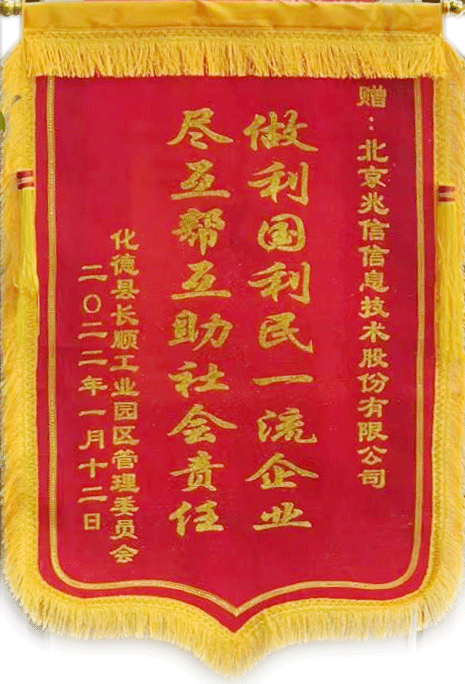 赠：北京兆信信息技术股份有限公司
做利国利民一流企业
尽互帮互助社会责任
化德县长顺工业园区管理委员会
二〇二二年一月十二日